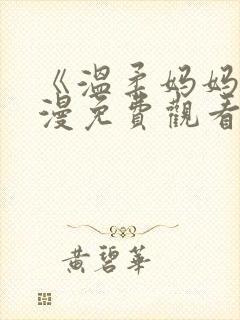 《溫柔妈妈
漫免費觀看
黄碧華